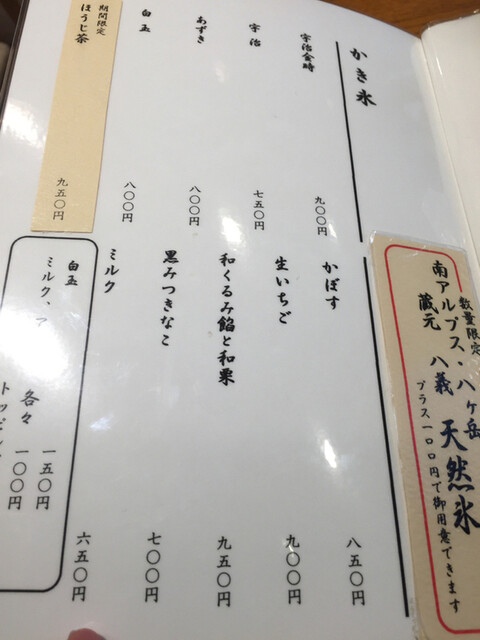 数量限定
南アルプス・八ヶ岳
蔵元 八義 天然氷
プラス一〇〇円で御用意できます
かき氷
宇治金時 九〇〇円
宇治 七五〇円
あずき 八〇〇円
白玉 八〇〇円
期間限定
ほうじ茶 九五〇円
かぼす 八五〇円
生いちご 九〇〇円
和くるみ餡と和栗 九五〇円
黒みつきなこ 七〇〇円
ミルク 六五〇円
白玉 一五〇円
ミルク、
各々 一〇〇円